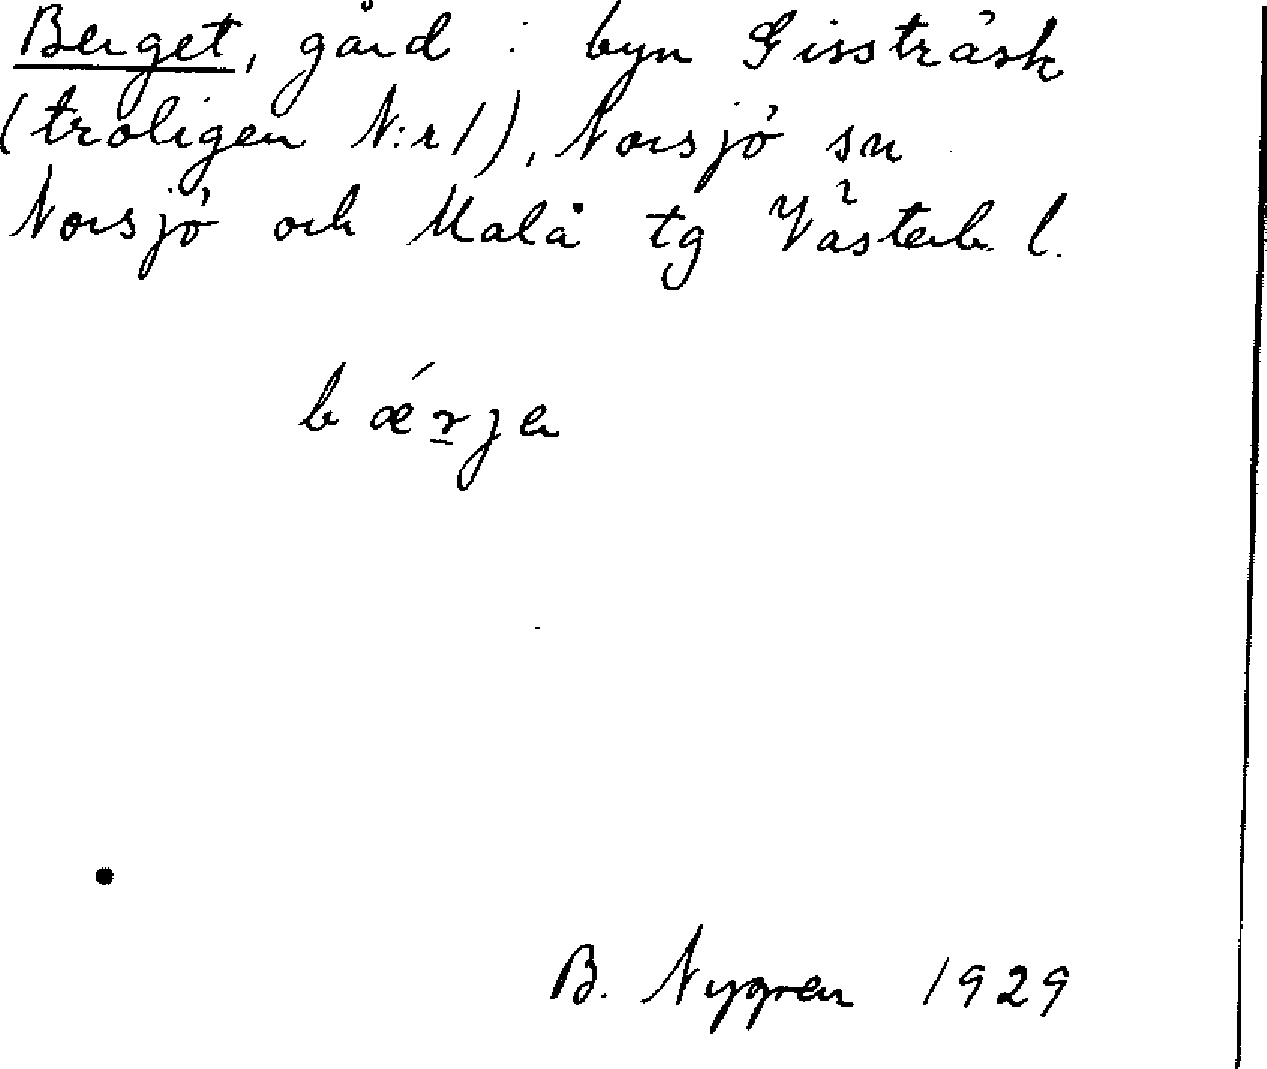 Berget, gård i byn Gissträsk
(troligen N:r 1), Norsjö sn
Norsjö och Malå tg Västerb. l.
bǽr̲ja
B. Nygren 1929